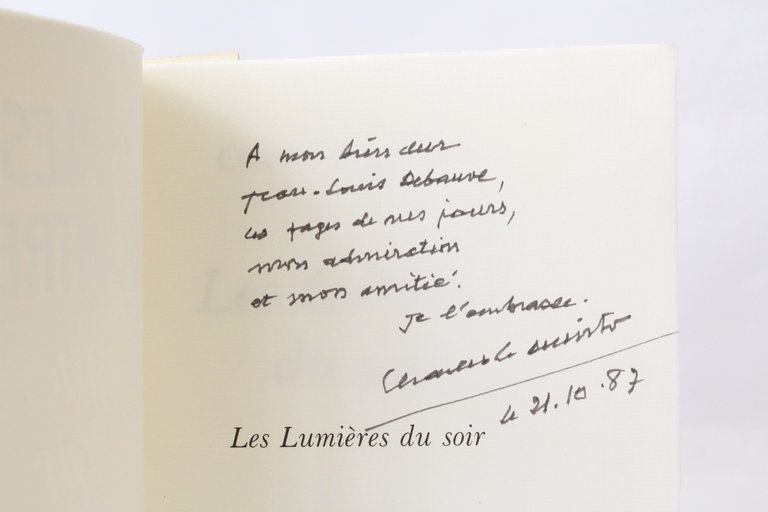 A mon bien cher
Jean-Louis Debauve,
les pages de nos jours,
mon admiration
et mon amitié.
Je l'embrasse.
le 21.10.87
Les Lumières du soir